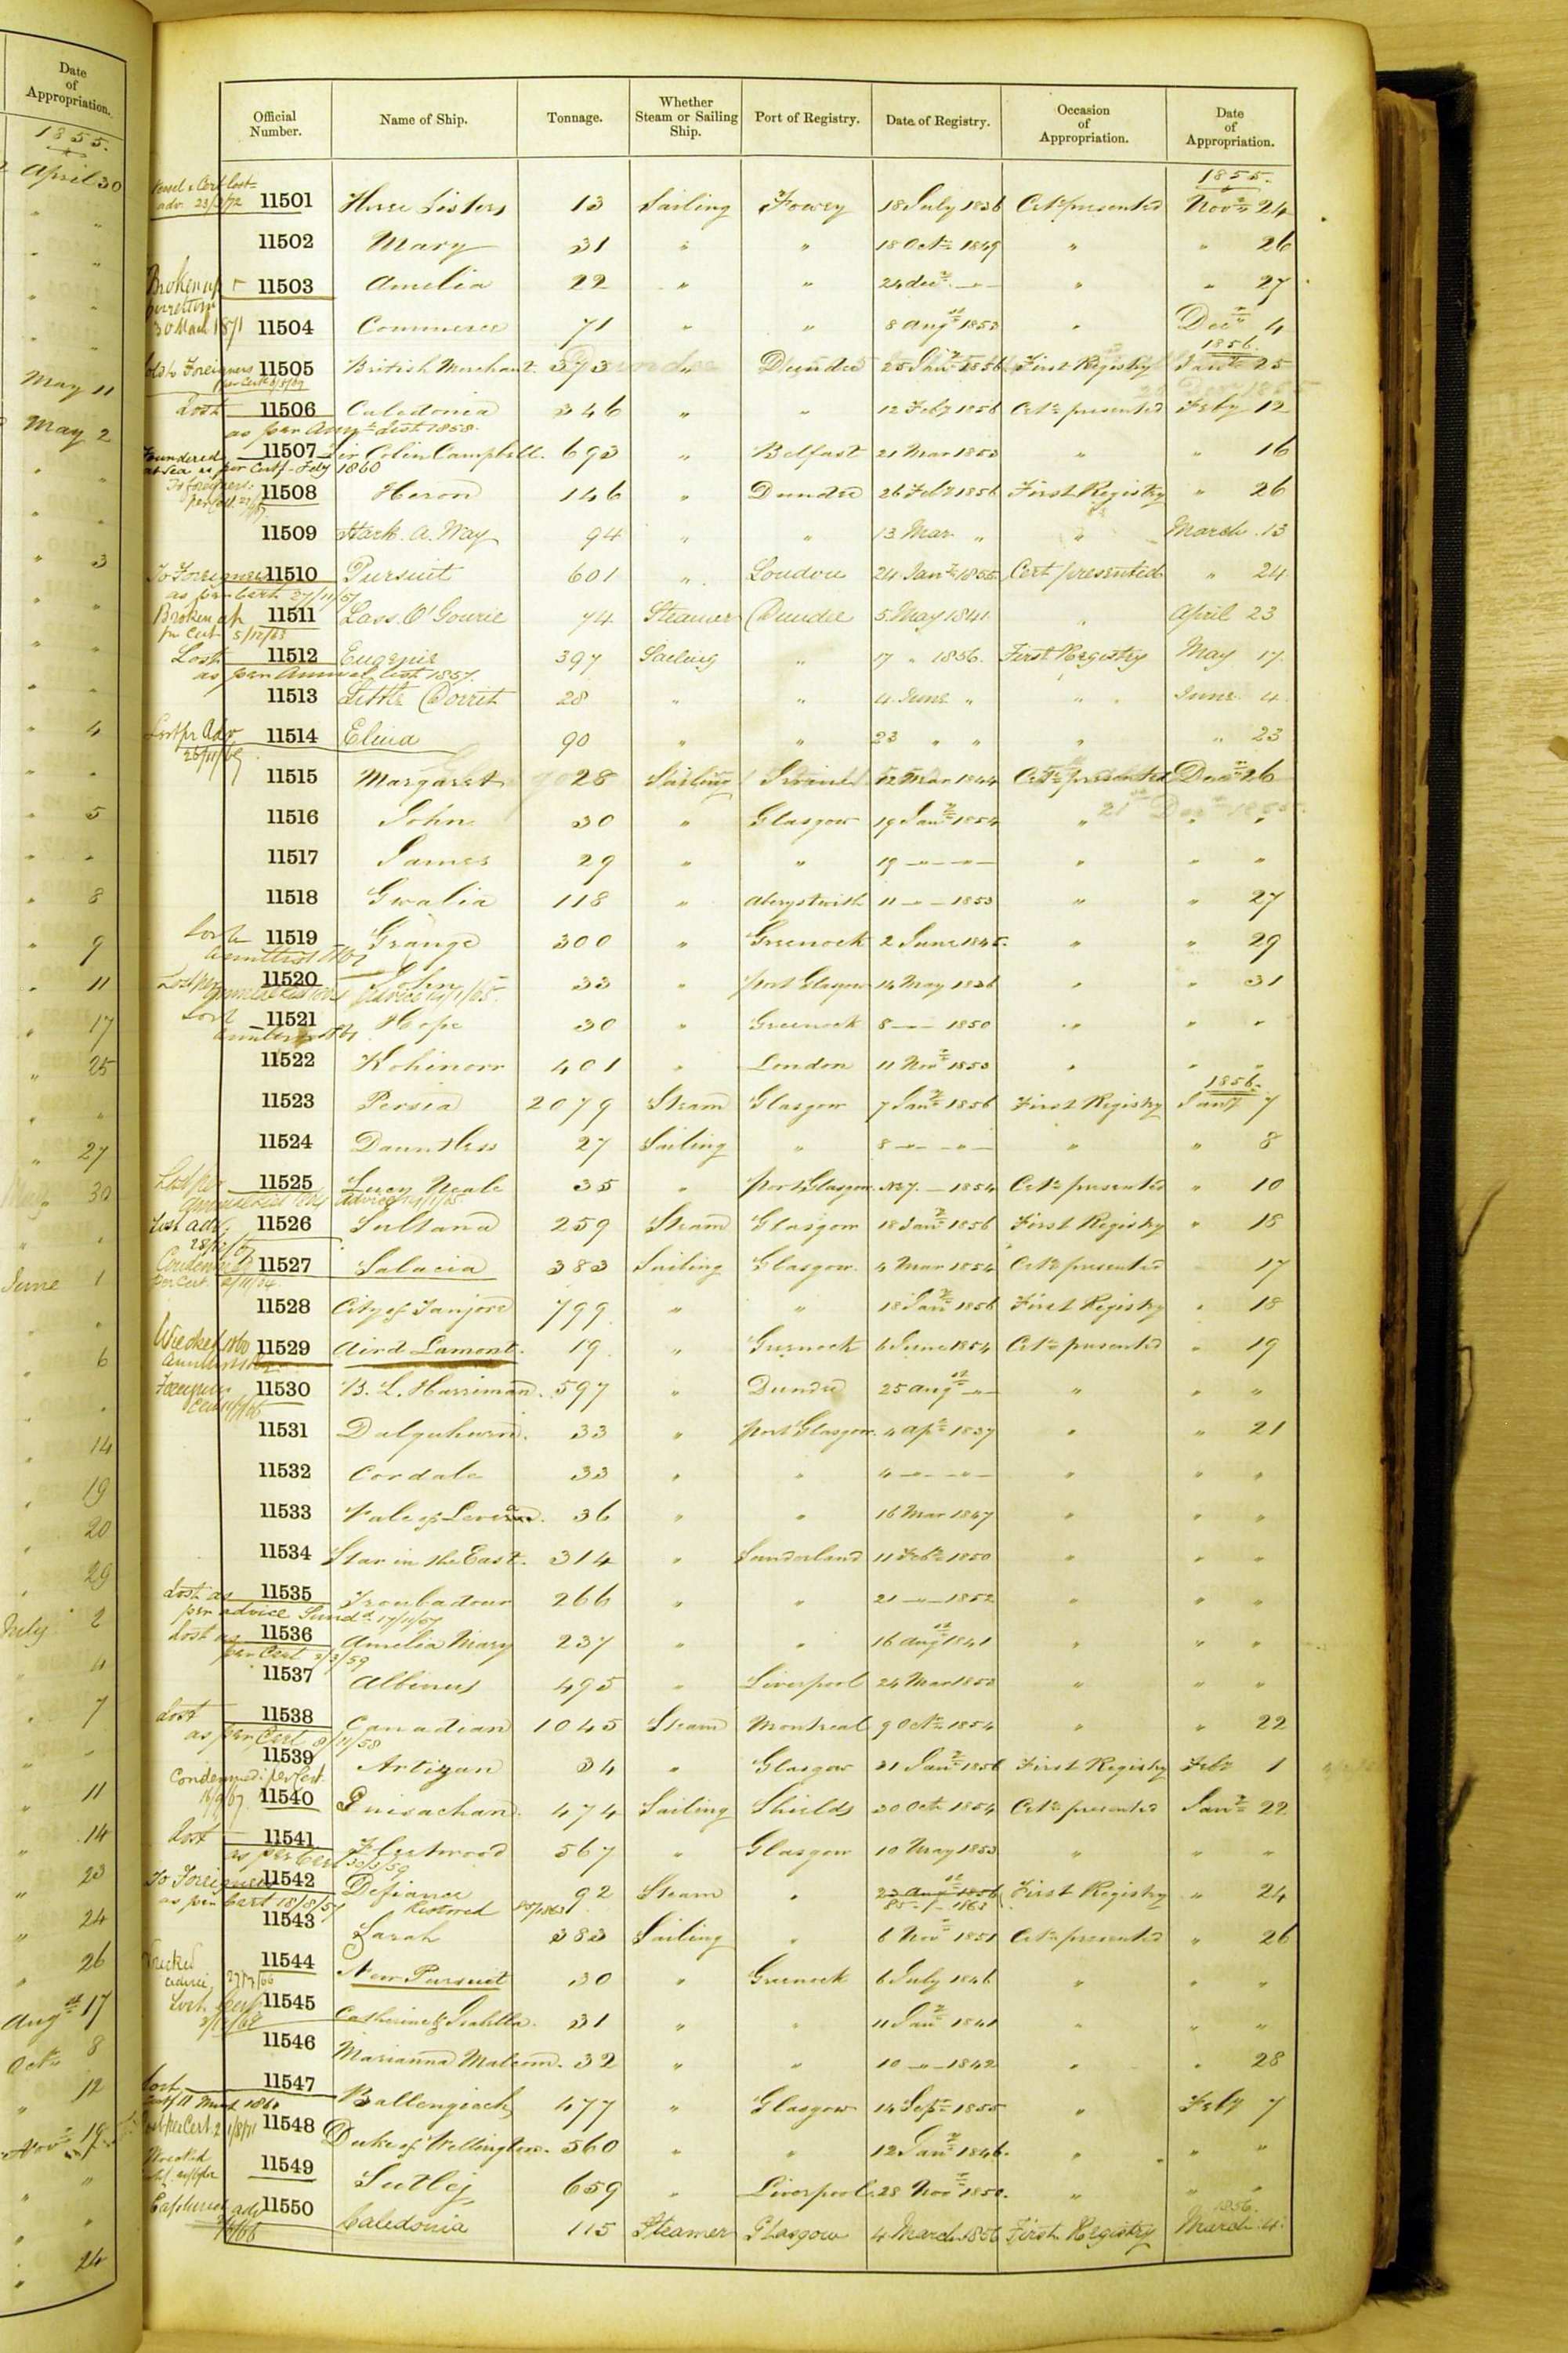 Date of Appropriation.
1855.
April 30
May 11
May 2
" 3
" 4
" 5
" 8
" 9
" 11
" 17
" 25
" 27
30
June 1
" 6
" 14
" 19
" 20
" 29
July 2
" 4
" 7
" 11
" 14
" 23
" 24
" 26
Augst 17
Octr 8
" 12
Novr 19
" 24
Official Number. Name of Ship. Tonnage. Whether Steam or Sailing Ship. Port of Registry. Date of Registry. Occasion of Appropriation. Date of Appropriation.
1855.
11501 Three Sisters 13 Sailing Fowey 18 July 1836 Certe presented Novr 24
11502 Mary 31 " " 18 Octr 1849 " " 26
Broken up
11503 Amelia 22 " " 24 decr — " " 27
30 March 1871
11504 Commerce 71 " " 8 augst 1853 " Decr 4
1856.
Sold to Foreigners
11505 British Merchant 373 " Dundee 25 Jany 1856 First Registry Jany 25
Lost
11506 Caledonia 346 " " 12 Feby 1856 Certe presented Feby 12
as per Annl List 1858.
Foundered
11507 Sir Colin Campbell. 693 " Belfast 21 Mar 1853 " " 16
at sea as per Certf. Feby 1860
To foreigners
11508 Heron 146 " Dundee 26 Feby 1856 First Registry " 26
11509 Hark. A. Way 94 " " 13 Mar " " March 13
To Foreigners
11510 Pursuit 601 " London 24 Jany 1855 Cert presented " 24
as per Cert 27/11/57
Broken up
11511 Lass. O' Gourie 74 Steamer Dundee 5 May 1841 " April 23
per Cert 5/12/63
Lost
11512 Eugenie 397 Sailing " 17 " 1856. First Registry May 17.
as per Annual List 1857.
11513 Little Dorrit 28 " " 4 June " " June 4
Lost pr Adv
11514 Eliza 90 " " 23 " " " " 23
11515 Margaret 28 Sailing Irvine 12 Mar 1844 Certe presented Decr 26
11516 John 30 " Glasgow 19 Jany 1854 " " "
11517 James 29 " " 19 — " — " " "
11518 Gwalia 118 " Aberystwith 11 — " — 1853 " " 27
Lost
11519 Grange 300 " Greenock 2 June 1845 " " 29
11520 John 33 " port Glasgow 14 May 1836 " " 31
Lost
11521 Hope 30 " Greenock 8 — " — 1850 " " "
11522 Kohinoor 401 " London 11 Novr 1853 " " "
1856.
11523 Persia 2079 Steam Glasgow 7 Jany 1856 First Registry Jany 7
11524 Dauntless 27 Sailing " 8 — " — " " 8
11525 Lucy Neale 35 " port Glasgow 1854 Certe presented " 10
Lost adv.
11526 Sultana 259 Steam Glasgow 18 Jany 1856 First Registry " 18
11527 Salacia 383 Sailing Glasgow. 4 Mar 1854 Certe presented 17
11528 City of Tanjore 799 " " 18 Jany 1856 First Registry " 18
Wrecked 1860
11529 Aird Lamont. 19 " Greenock 6 June 1854 Certe presented " 19
11530 B. L. Harriman. 597 " Dundee 25 augst — " — " " "
11531 Dalquhurn. 33 " port Glasgow. 4 apl 1837 " " 21
11532 Cordale 33 " " 4 — " — " " "
11533 Vale of Leven. 36 " " 16 Mar 1847 " " "
11534 Star in the East. 314 " Sunderland 11 Feby 1850 " " "
Lost as
11535 Troubadour 266 " " 21 — " — 1852 " " "
per advice Sundd 17/11/67
Lost as
11536 Amelia Mary 237 " " 16 augst 1841 " " "
per Cert 2/3/59
11537 Albinus 495 " Liverpool 24 Mar 1853 " " "
Lost
11538 Canadian 1045 Steam Montreal 9 Octr 1854 " " 22
as per Cert 9/11/58
11539 Artizan 34 " Glasgow 31 Jany 1856 First Registry Feby 1
Condemned: per Cert.
11540 Guisachan. 474 Sailing Shields 30 Octr 1854 Certe presented Jany 22
Lost
11541 Fleetwood 567 " Glasgow 10 May 1853 " " "
as per Cert 30/3/59
To Foreigners
11542 Defiance 92 Steam " 23 Augst 1856 First Registry " 24
as per Cert 18/8/57 Restored
11543 Sarah 383 Sailing " 6 Novr 1851 Certe presented " 26
Wrecked
11544 New Pursuit 30 " Greenock 6 July 1846 " " "
11545 Catherine & Isabella. 31 " " 11 Jany 1841 " " "
11546 Marianna Malcom. 32 " " 10 — " — 1842 " " 28
Lost
11547 Ballengiech 477 " Glasgow 14 Sepr 1855 " Feby 7
11548 Duke of Wellington. 560 " " 12 Jany 1846. " " "
Wrecked
11549 Sutlej 659 " Liverpool. 28 Novr 1850. " " "
1856.
11550 Caledonia 115 Steamer Glasgow 4 March 1856 First Registry March 4